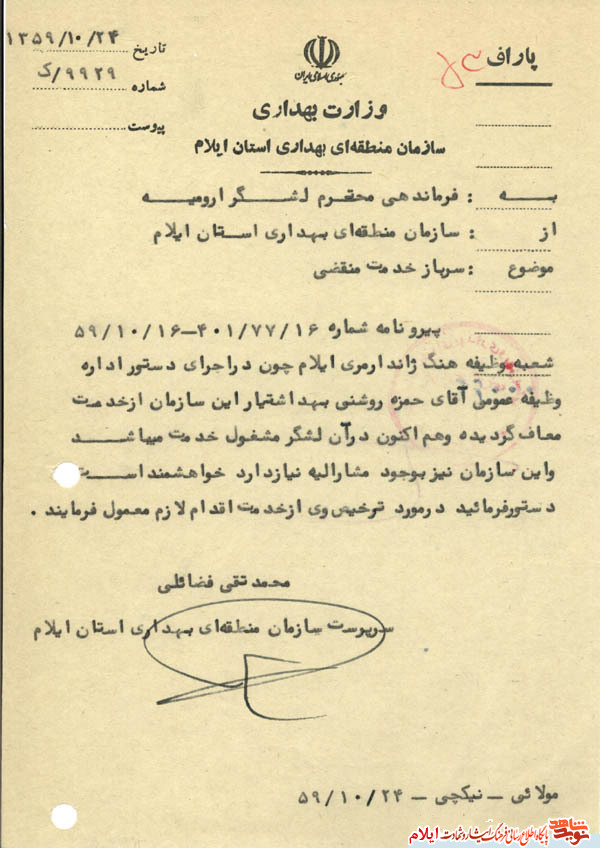 تاریخ ۱۳۵۹/۱۰/۲۴
شماره ۹۹۲۹/ک
پیوست
جمهوری اسلامی ایران
پاراف
وزارت بهداری
سازمان منطقه‌ای بهداری استان ایلام
به : فرماندهی محترم لشگر ارومیه
از : سازمان منطقه‌ای بهداری استان ایلام
موضوع : سرباز خدمت منقضی
پیرو نامه شماره ۴۰۱/۷۷/۱۶-۵۹/۱۰/۱۶
شعبه وظیفه هنگ ژاندارمری ایلام چون در اجرای دستور اداره
وظیفه عمومی آقای حمزه روشنی بهداشتیار این سازمان از خدمت
معاف گردیده و هم اکنون در آن لشگر مشغول خدمت میباشد
و این سازمان نیز بوجود مشارالیه نیاز دارد خواهشمند است
دستور فرمائید در مورد ترخیص وی از خدمت اقدام لازم معمول فرمایند .
محمد تقی فضائلی
سرپرست سازمان منطقه‌ای بهداری استان ایلام
مولائی - نیکچی - ۵۹/۱۰/۲۴
نوید شاهد
پایگاه اطلاع رسانی فرهنگ ایثار و شهادت ایلام